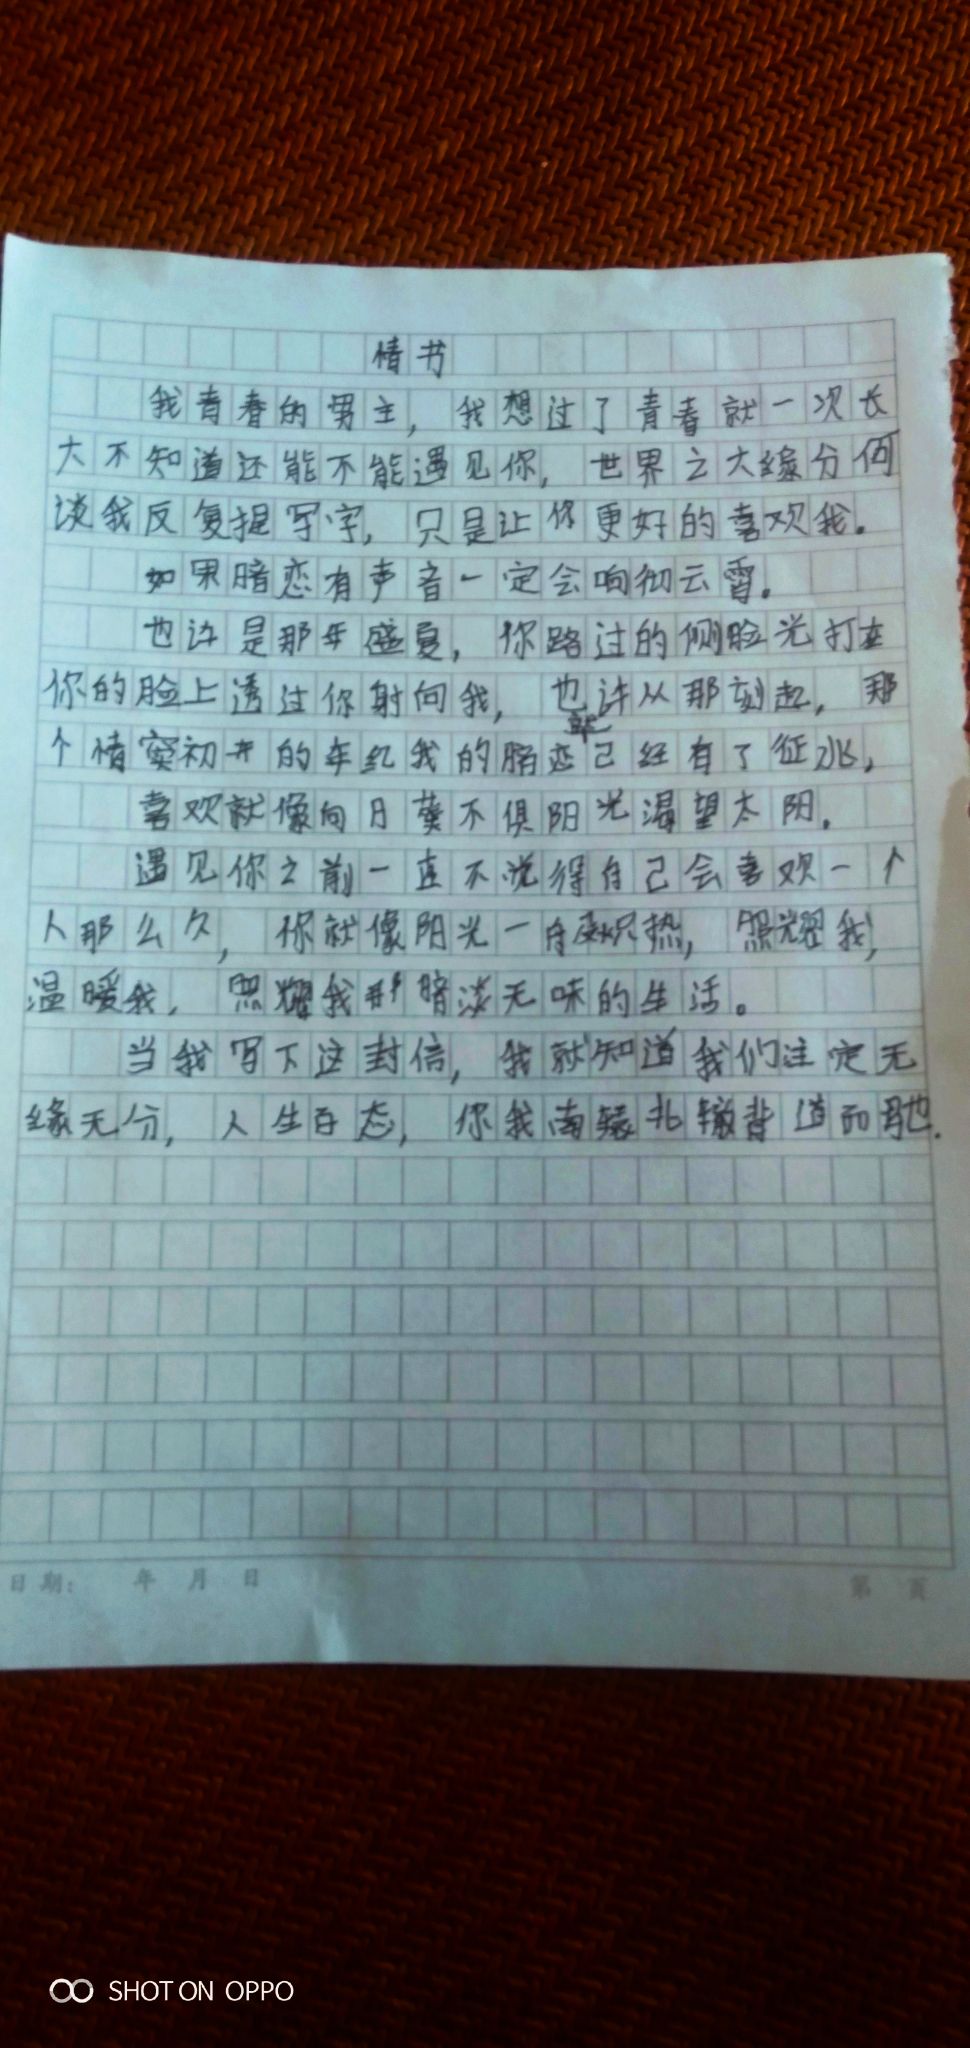 情书
我青春的男主，我想过了青春就一次长
大不知道还能不能遇见你，世界之大缘分何
谈我反复提写字，只是让你更好的喜欢我。
如果暗恋有声音一定会响彻云霄。
也许是那年盛夏，你路过的侧脸光打在
你的脸上透过你射向我，也许从那刻起，那
就
个情窦初开的年纪我的暗恋已经有了征兆，
喜欢就像向日葵不俱阳光渴望太阳。
遇见你之前一直不觉得自己会喜欢一个
人那么久，你就像阳光一自炙炽热，照耀我，
温暖我，照耀我那暗淡无味的生活。
当我写下这封信，我就知道我们注定无
缘无分，人生百态，你我南辕北辙背道而驰.
日期： 年 月 日
第 页
SHOT ON OPPO